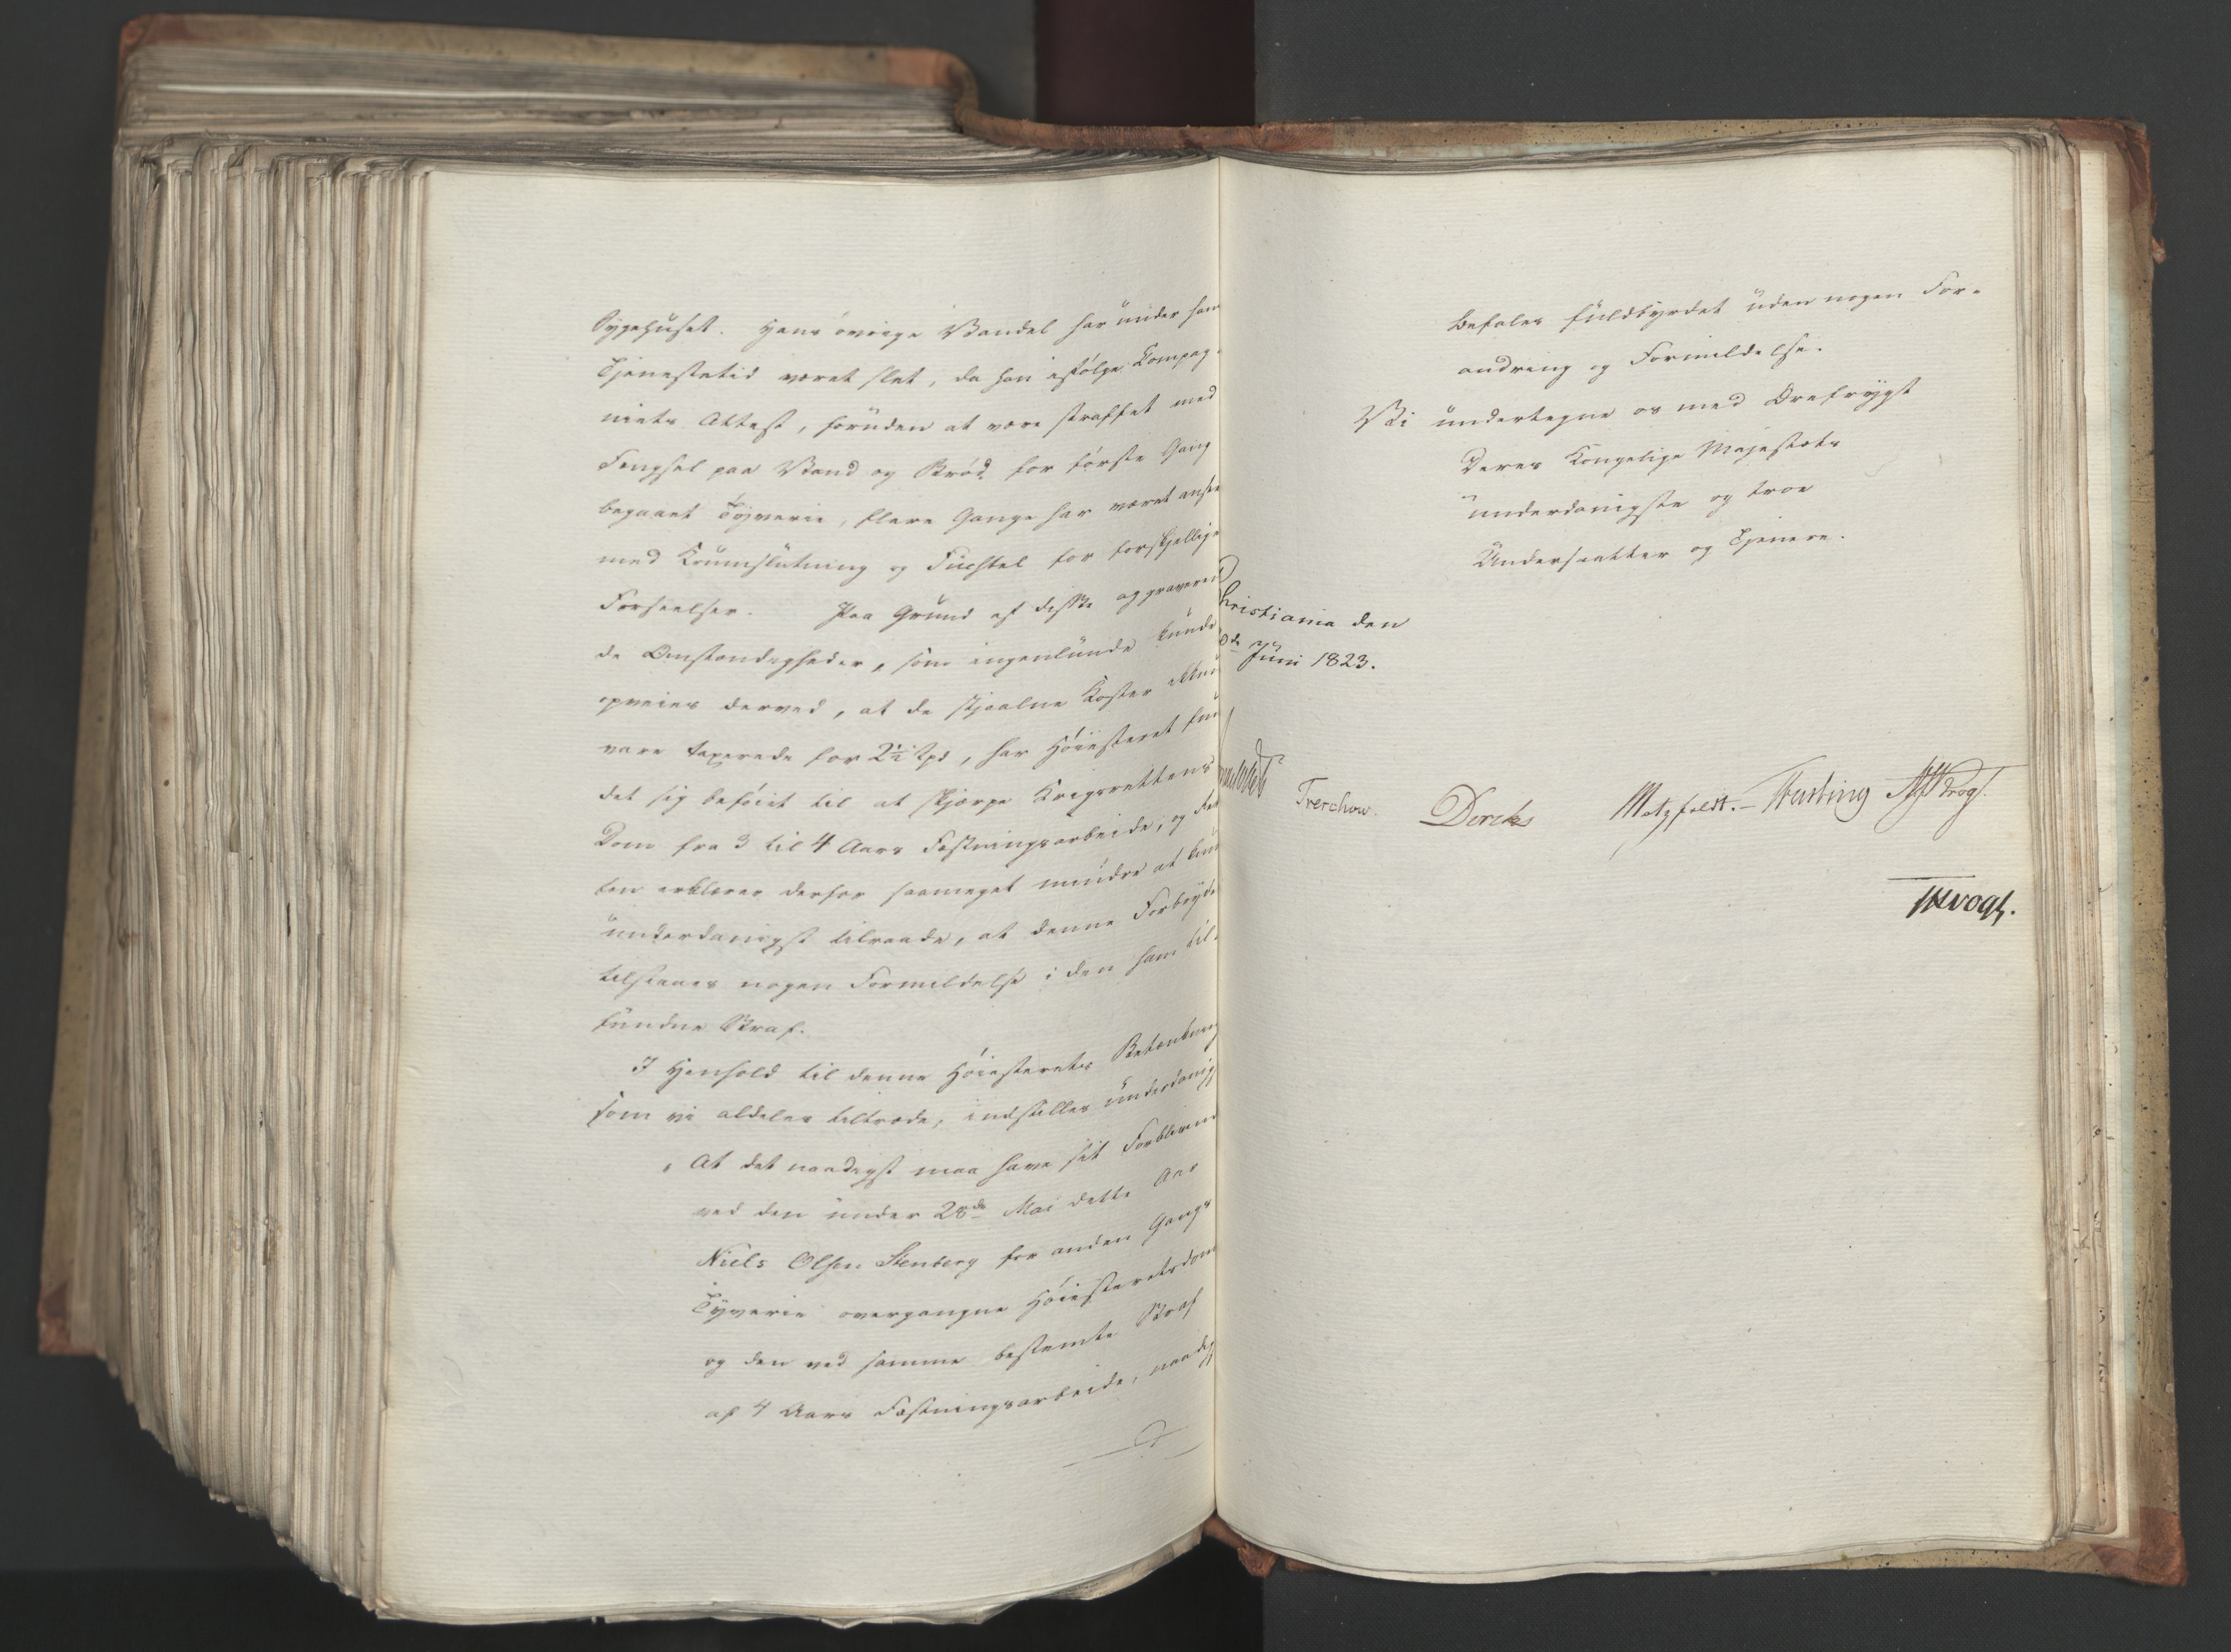 Sygehuset. Hans øvrige Vandel har under hans
Tjenestetid været slet, da han ifølge Kompag-
niets Attest, foruden at være straffet med
Fengsel paa Vand og Brød for første Gang
begaaet Tyverie, flere Gange har været anseet
med Krumslutning og Fuchtel for forskjellige
Forseelser. Paa Grund af disse aggraveren-
de Omstændigheder, som ingenlunde kunde
opveies derved, at de stjaalne Koster ikkun
vare taxerede for 2½ Spd, har Høiesteret fun-
det sig beføiet til at skjærpe Krigsrettens
Dom fra 3 til 4 Aars Fæstningsarbeide, og Ret-
ten erklærer derfor saameget mindre at kunne
underdanigst tilraade, at denne Forbryder
tilstaaes nogen Formildelse i den ham til-
fundne Straf.
I Henhold til denne Høiesterets Betænkning
som vi aldeles tiltræde, indstilles underdanigst
At det naadigst maa have sit Forblivende
ved den under 28de Mai dette Aar
Niels Olsen Stenberg for anden Gangs
Tyverie overgangne Høiesteretsdom
og den ved samme bestemte Straf
af 4 Aars Fæstningsarbeide, naadigst
befales fuldbyrdet uden nogen For-
andring og Formildelse.
Vi undertegne os med Ærefrygt
Deres Kongelige Majestæts
underdanigste og troe
Undersaatter og Tjenere.
Christiania den
Juni 1823.
Treschow. Diriks Motzfeldt. Vogt.
Vogt.